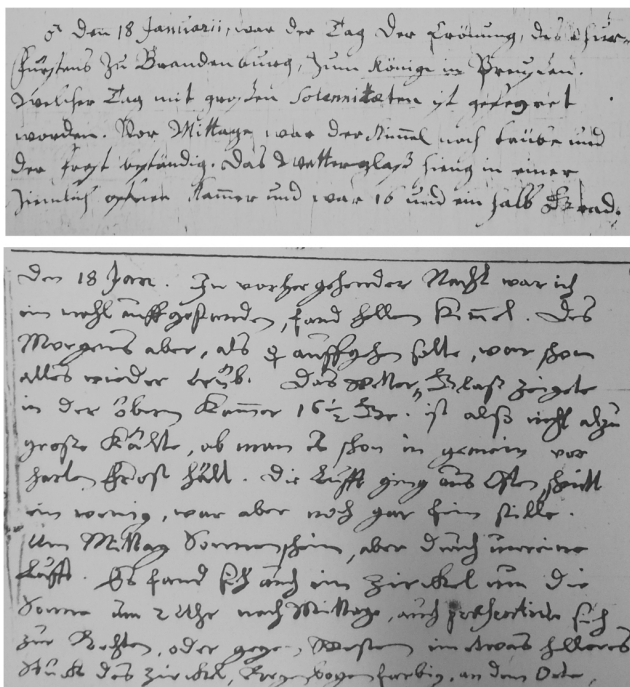 ♂ Den 18 Januarii, war der Tag der Crönung, des Chur-
fürstens zu Brandenburg, zum Könige in Preußen.
Welcher Tag mit großen Solennitæten ist gefeyret
worden. Vor Mittage war der Himmel noch trübe und
der frost beständig. Das Wetterglaß hieng in einer
ziemlich offenen Kammer und war 16 und ein halb Grad.
Den 18 Jan. In vorhergehender Nacht war ich
ein mahl auffgestanden, fand hellen Himmel. Des
Morgens aber, als ♀ auffgehen solte, war schon
alles wieder trüb. Das Wetter Glaß zeigete
in der öbern Kammer 16 1/2 Gr. ist alß nicht alzu
große Kälte, ob man es schon in gemein vor
harten Frost hält. Die Lufft ging aus Osten,
ein wenig, war aber noch gar fein stille.
Um Mittag Sonnenschein, aber durch unreine
Lufft. Es fand sich auch ein Zirckel um die
Sonne um 2 Uhr nach Mittage, auch sich
zur Rechten, oder gegen Westen ein etwas helleres
Stück des Zirckels, Regenbogenfärbig, an dem Orte,